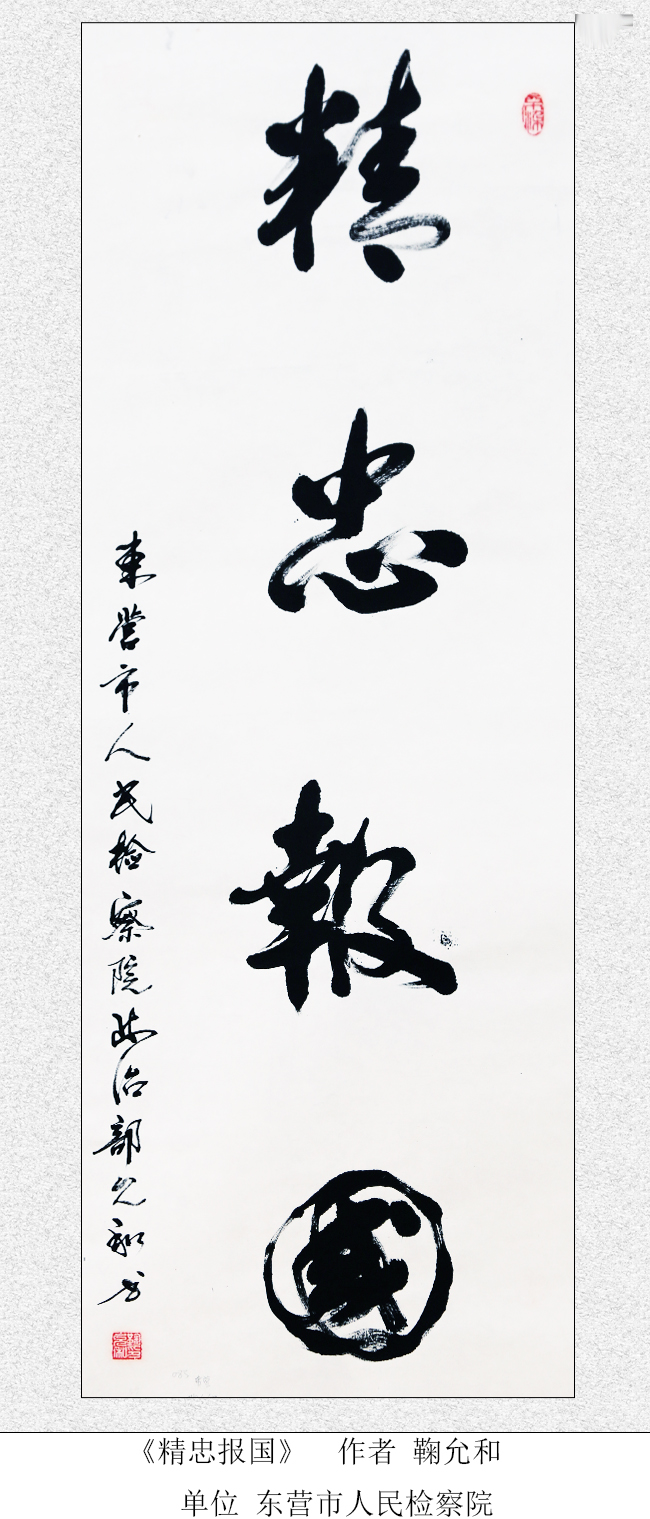 精忠報國
東营市人民检察院政治部允和书
《精忠报国》 作者 鞠允和
单位 东营市人民检察院